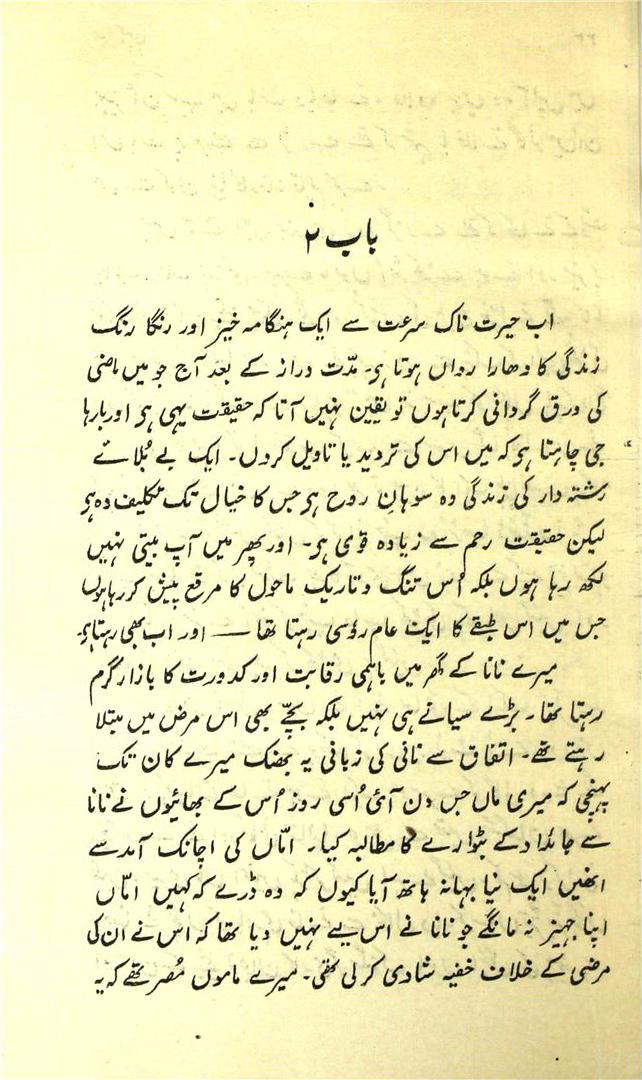 باب ۲
اب حیرت ناک سرعت سے ایک ہنگامہ خیز اور رنگا رنگ
زندگی کا دھارا رواں ہوتا ہی۔ مدّت دراز کے بعد آج جو میں ماضی
کی ورق گردانی کرتا ہوں تو یقین نہیں آتا کہ حقیقت یہی ہی اور بارہا
جی چاہتا ہی کہ میں اس کی تردید یا تاویل کردوں۔ ایک بے بُلائے
رشتہ دار کی زندگی وہ سوہانِ روح ہی جس کا خیال تک تکلیف دہ ہی
لیکن حقیقت رحم سے زیادہ قوی ہی۔ اور پھر میں آپ بیتی نہیں
لکھ رہا ہوں بلکہ اُس تنگ و تاریک ماحول کا مرقع پیش کر رہا ہوں
جس میں اس طبقے کا ایک عام رؤسی رہتا تھا — اور اب بھی رہتا ہی۔
میرے نانا کے گھر میں باہمی رقابت اور کدورت کا بازار گرم
رہتا تھا۔ بڑے سیانے ہی نہیں بلکہ بچّے بھی اس مرض میں مبتلا
رہتے تھے۔ اتفاق سے نانی کی زبانی یہ بھنک میرے کان تک
پہنچی کہ میری ماں جس دن آئی اُسی روز اُس کے بھائیوں نے نانا
سے جائداد کے بٹوارے کا مطالبہ کیا۔ امّاں کی اچانک آمد سے
انھیں ایک نیا بہانہ ہاتھ آیا کیوں کہ وہ ڈرے کہ کہیں امّاں
اپنا جہیز نہ مانگے جو نانا نے اس لیے نہیں دیا تھا کہ اس نے ان کی
مرضی کے خلاف خفیہ شادی کر لی تھی۔ میرے ماموں مُصر تھے کہ یہ